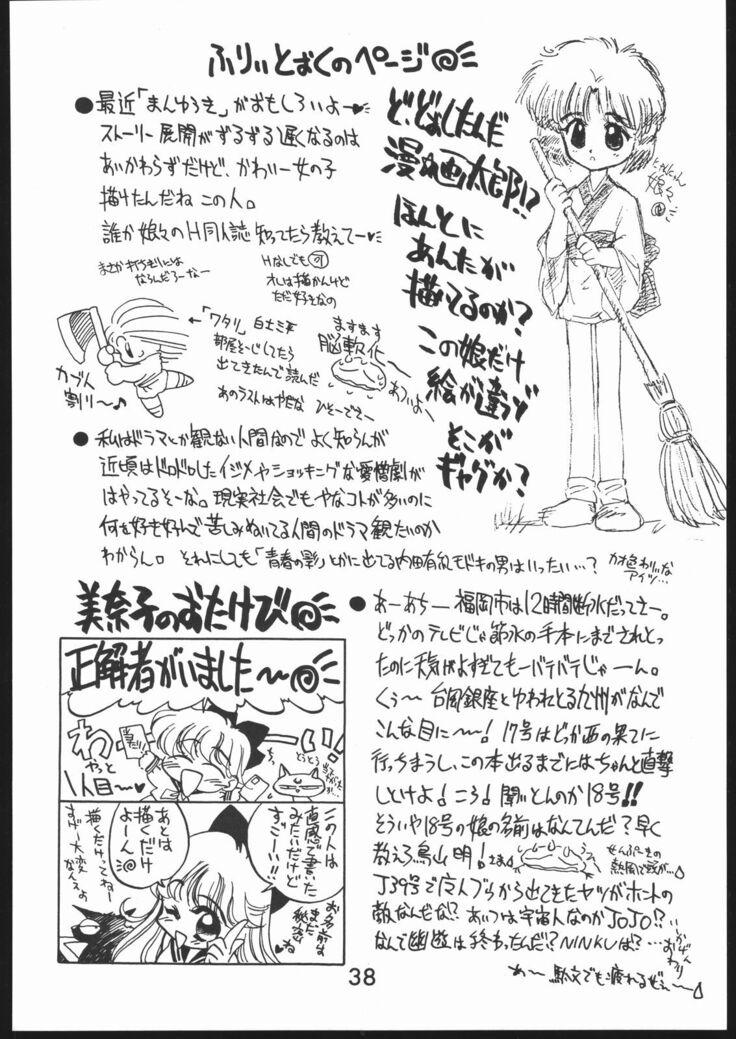 ふりぃとおくのページ
●最近「まんゆうき」がおもしろいよー♥
ストーリー展開がずるずる遅くなるのは
あいかわらずだけど、かわいー女の子
描けたんだね この人。
誰か娘々のH同人誌 知ってたら教えてー♥
まさか打ちきりには
ならんだろーなー
Hなしでも可
オレは描かんけど
ただ好きなの
ど、どおしたんだ
漫☆画太郎!?
ほんとに
あんたが
描いてるのか?
この娘だけ
絵が違うぞ
そこが
ギャグか?
にゃんにゃん
娘々
カブト
割り〜♪
←「ワタリ」白土三平
部屋そーじしてたら
出てきたんで読んだ
あのラストはやだな
ますます
脳軟化
あづいよ
ひそーでさー
●私はドラマしか観ない人間なので よく知らんが
近頃はドロドロしたイジメやショッキングな愛憎劇が
はやってるそーな。現実社会でもやなコトが多いのに
何を好き好んで苦しみぬいてる人間のドラマ観たいのか
わからん。それにしても「青春の影」とかに出てる内田有紀モドキの男はいったい…?
カオ色わりぃな
アイツ…
美奈子のおたけび
正解者がいました〜
わーーい!
やっと
1人目〜♥
当たり
この人は
直感で書いた
みたいだけど
すごーい!!
お名前は
まだ
秘密
♥ね
あとは
描くだけ
よーん
描くだけってねー
すげー大変
なんスよ
●あーあちー 福岡市は12時間断水だってさー。
どっかのテレビじゃ節水の手本にまでされとっ
たのに天気がよすぎてもーバテバテじゃーん。
くぅ〜 台風銀座とゆわれとる九州がなんで
こんな目に〜! 17号はどっか西の果てに
行っちまうし、この本出るまでにはちゃんと直撃
しとけよ! こら! 聞いとんのか18号!!
そういや18号の娘の名前はなんてんだ? 早く
教えろ鳥山明! さま
せんぷーきの
熱風で我が…
J39号で度人ブリから出てきたヤツがホントの
敵なんだな!? あいつは宇宙人なのかJOJO!? …
なんで幽遊は終わったんだ!? NINKUは? …
かぞん
おわり
あ〜 駄文でも疲れるぜぇ〜
38